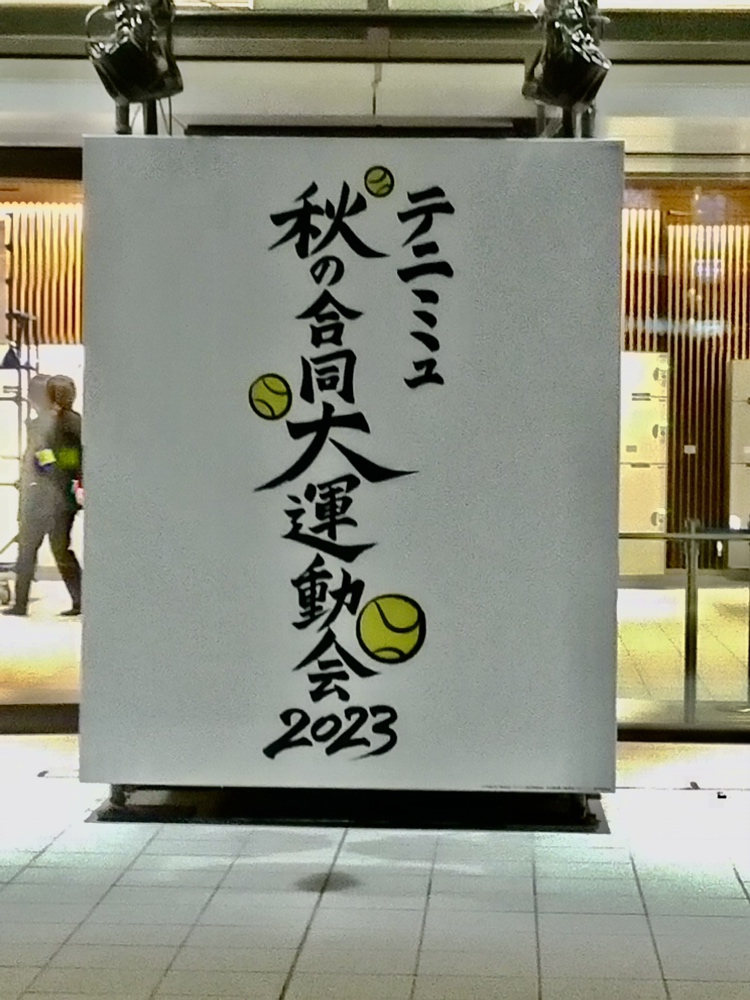 テニミュ
秋の合同大運動会
2023